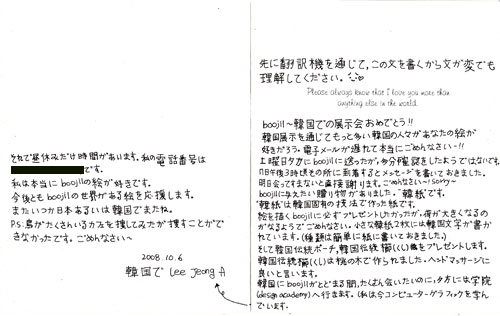 先に翻訳機を通じて、この文を書くから文が変でも
理解してください。
Please always know that I love you more than
anything else in the world.
boojil~韓国での展示会おめでとう!!
韓国展示を通じてもっと多い韓国の人々があなたの絵が
好きだろう。電子メールが遅れて本当にごめなさい~!!
土曜日夕方にboojilに送ったが、多分確認をしたようではないです。
明日会ってすまないと直接謝ります。ごめなさい~!sorry~
boojilに与えたい贈り物がありました。"韓紙"です。
"韓紙"は韓国固有の技法で作った紙です。
絵を描くboojilに必ずプレゼントしたかったが、荷が大きくなるの
かなるようでごめんなさい。小さな韓紙2枚には韓国文字が書か
れています。(種類は簡単に紙に書いておきました。)
そして韓国伝統ポーチ、韓国伝統櫛(くし)をプレゼントします。
韓国伝統櫛(くし)は桃の木で作られました。ヘッドマッサージに
良いと言います。
韓国にboojilがとどまる間、たくさん会いたいのに、夕方には学院
(design academy)へ行きます。(私は今コンピューターグラフィックを学ん
でいます。
それで昼休みだけ時間があいます。私の電話番号は
です。
私は本当にboojilの絵が好きです。
今後ともboojilの世界がある絵を応援します。
またいつか日本あるいは韓国でまたね。
PS:鳥がたくさんいるカフェを捜してみたが捜すことがで
きなかったです。ごめなさい~
2008.10.6
韓国で Lee Jeong A